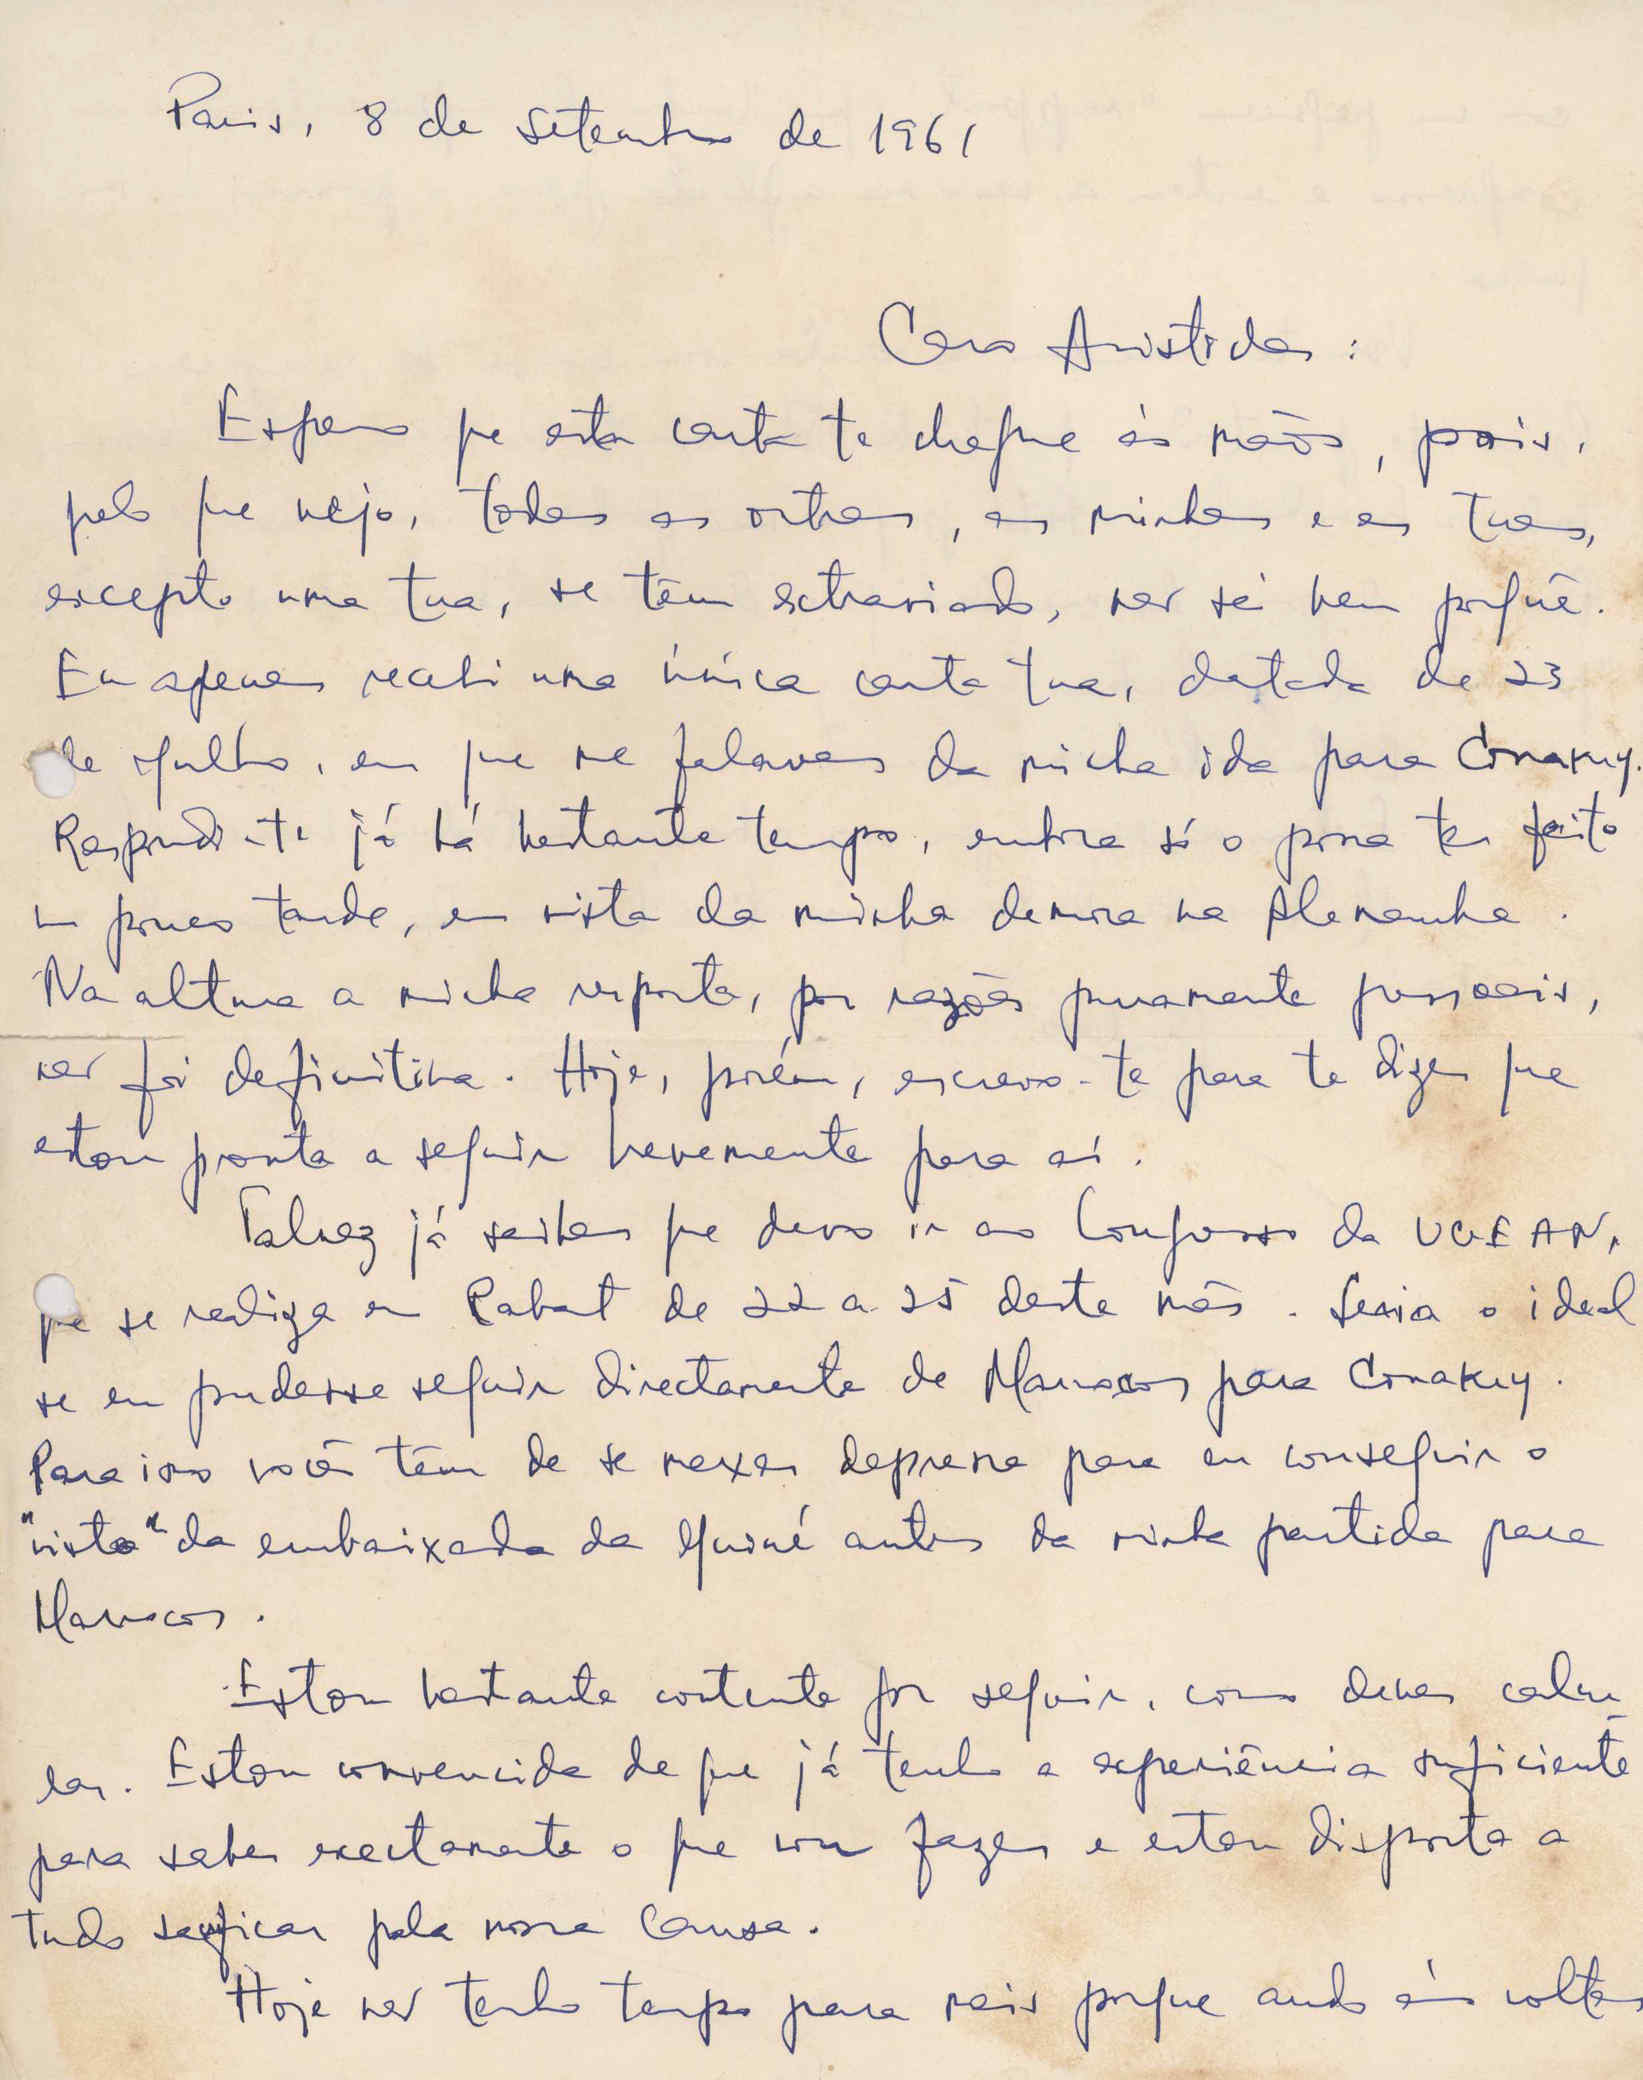 Paris, 8 de Setembro de 1961
Caro Aristides:
Espero que esta carta te chegue às mãos, pois,
pelo que vejo, todas as outras, as minhas e as tuas,
excepto uma tua, se têm extraviado, não sei bem porquê.
Eu apenas recebi uma única carta tua, datada de 23
de Julho, em que me falavas da minha ida para Conakry.
Respondi-te já há bastante tempo, embora só o possa ter feito
um pouco tarde, em vista da minha demora na Alemanha.
Na altura a minha resposta, por razões puramente pessoais,
não foi definitiva. Hoje, porém, escrevo-te para te dizer que
estou pronta a seguir brevemente para aí.
Talvez já saibas que devo ir ao Congresso da UGEAN,
que se realiza em Rabat de 22 a 25 deste mês. Seria o ideal
se eu pudesse seguir directamente de Marrocos para Conakry.
Para isso vocês têm de se mexer depressa para eu conseguir o
"visto" da embaixada da Guiné antes da minha partida para
Marrocos.
Estou bastante contente por seguir, como deves calcu
lar. Estou convencida de que já tenho a experiência suficiente
para saber exectamente o que vou fazer e estou disposta a
tudo sacrificar pela nossa Causa.
Hoje não tenho tempo para mais porque ando às voltas